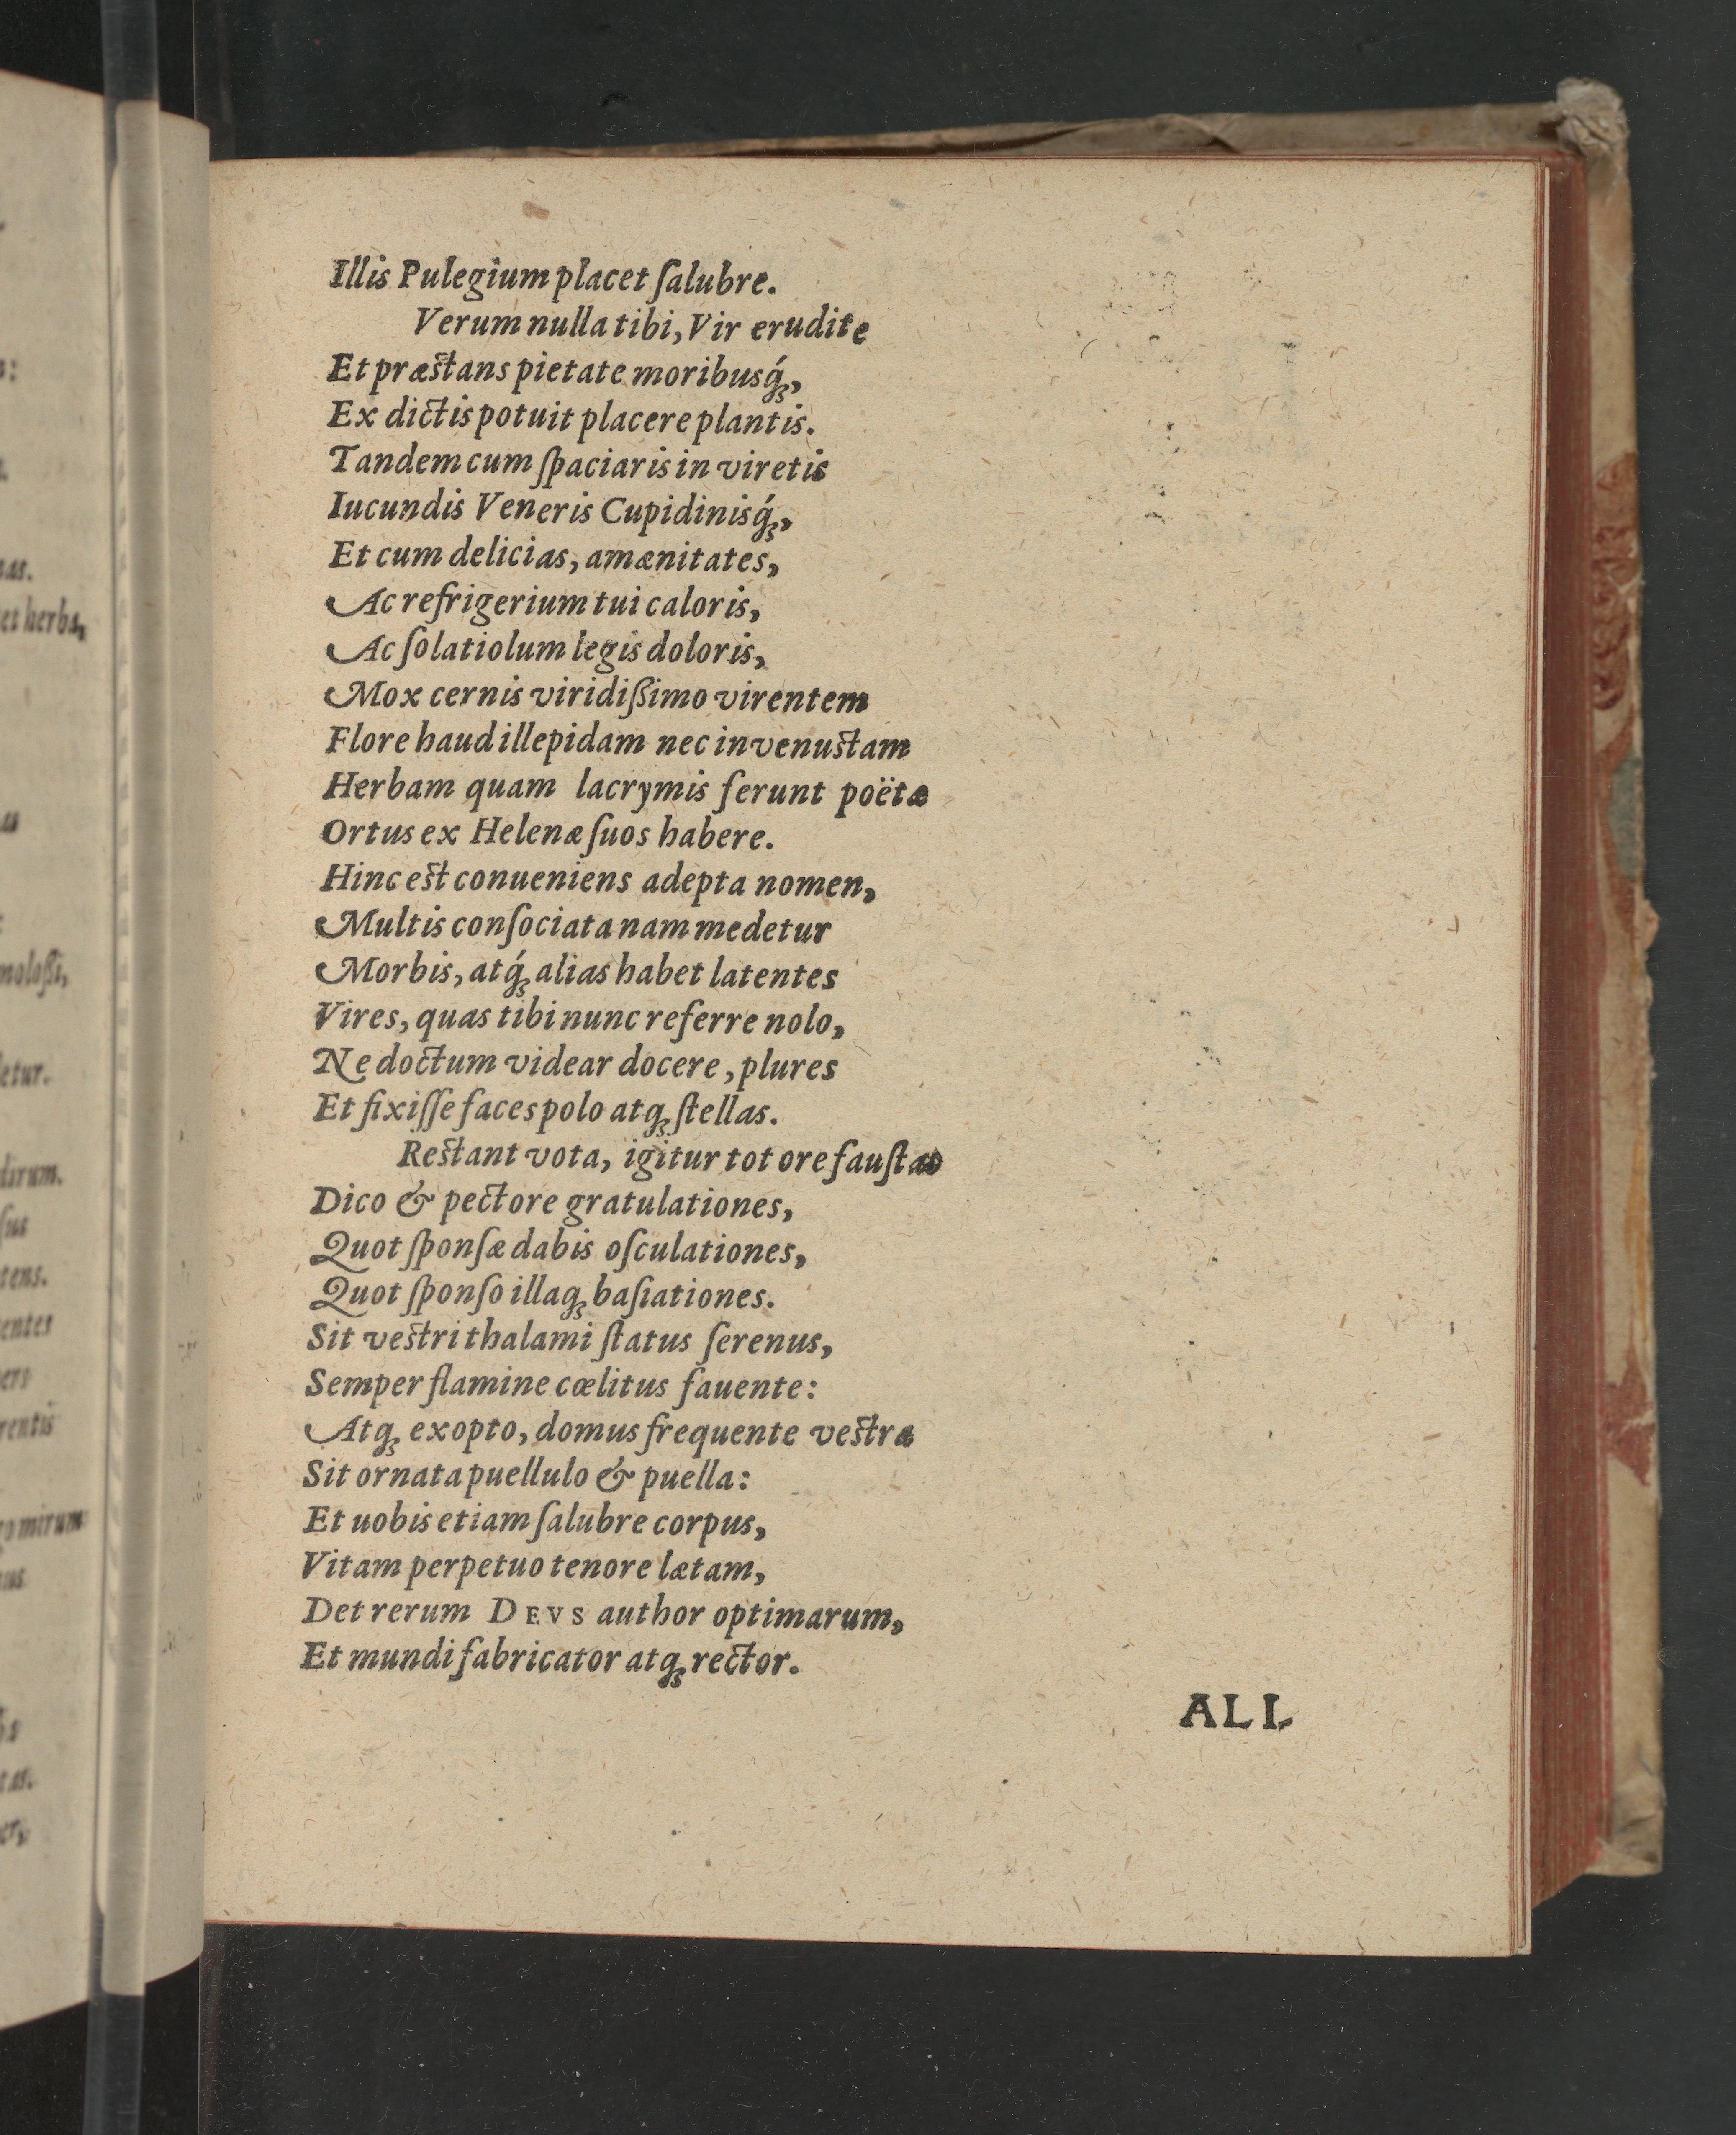 Illis Pulegium placet ſalubre.
Verum nulla tibi, Vir erudite
Et præſtans pietate moribusq́ꝫ,
Ex dictis potuit placere plantis.
Tandem cum ſpaciaris in viretis
Iucundis Veneris Cupidinisq́ꝫ,
Et cum delicias, amænitates,
Ac refrigerium tui caloris,
Ac ſolatiolum legis doloris,
Mox cernis viridißimo virentem
Flore haud illepidam nec invenuſtam
Herbam quam lacrymis ferunt poëtæ
Ortus ex Helenæ ſuos habere.
Hinc eſt conueniens adepta nomen,
Multis conſociata nam medetur
Morbis, atq́ꝫ alias habet latentes
Vires, quas tibi nunc referre nolo,
Ne doctum videar docere, plures
Et fixiſſe faces polo atqꝫ ſtellas.
Reſtant vota, igitur tot ore fauſtas
Dico & pectore gratulationes,
Quot ſponſæ dabis oſculationes,
Quot ſponſo illaqꝫ baſiationes.
Sit veſtri thalami ſtatus ſerenus,
Semper flamine cœlitus fauente:
Atqꝫ exopto, domus frequente veſtra
Sit ornata puellulo & puella:
Et uobis etiam ſalubre corpus,
Vitam perpetuo tenore lætam,
Det rerum DEVS author optimarum,
Et mundi fabricator atqꝫ rector.
ALI
et herba,
etur.
dirum.
tens.